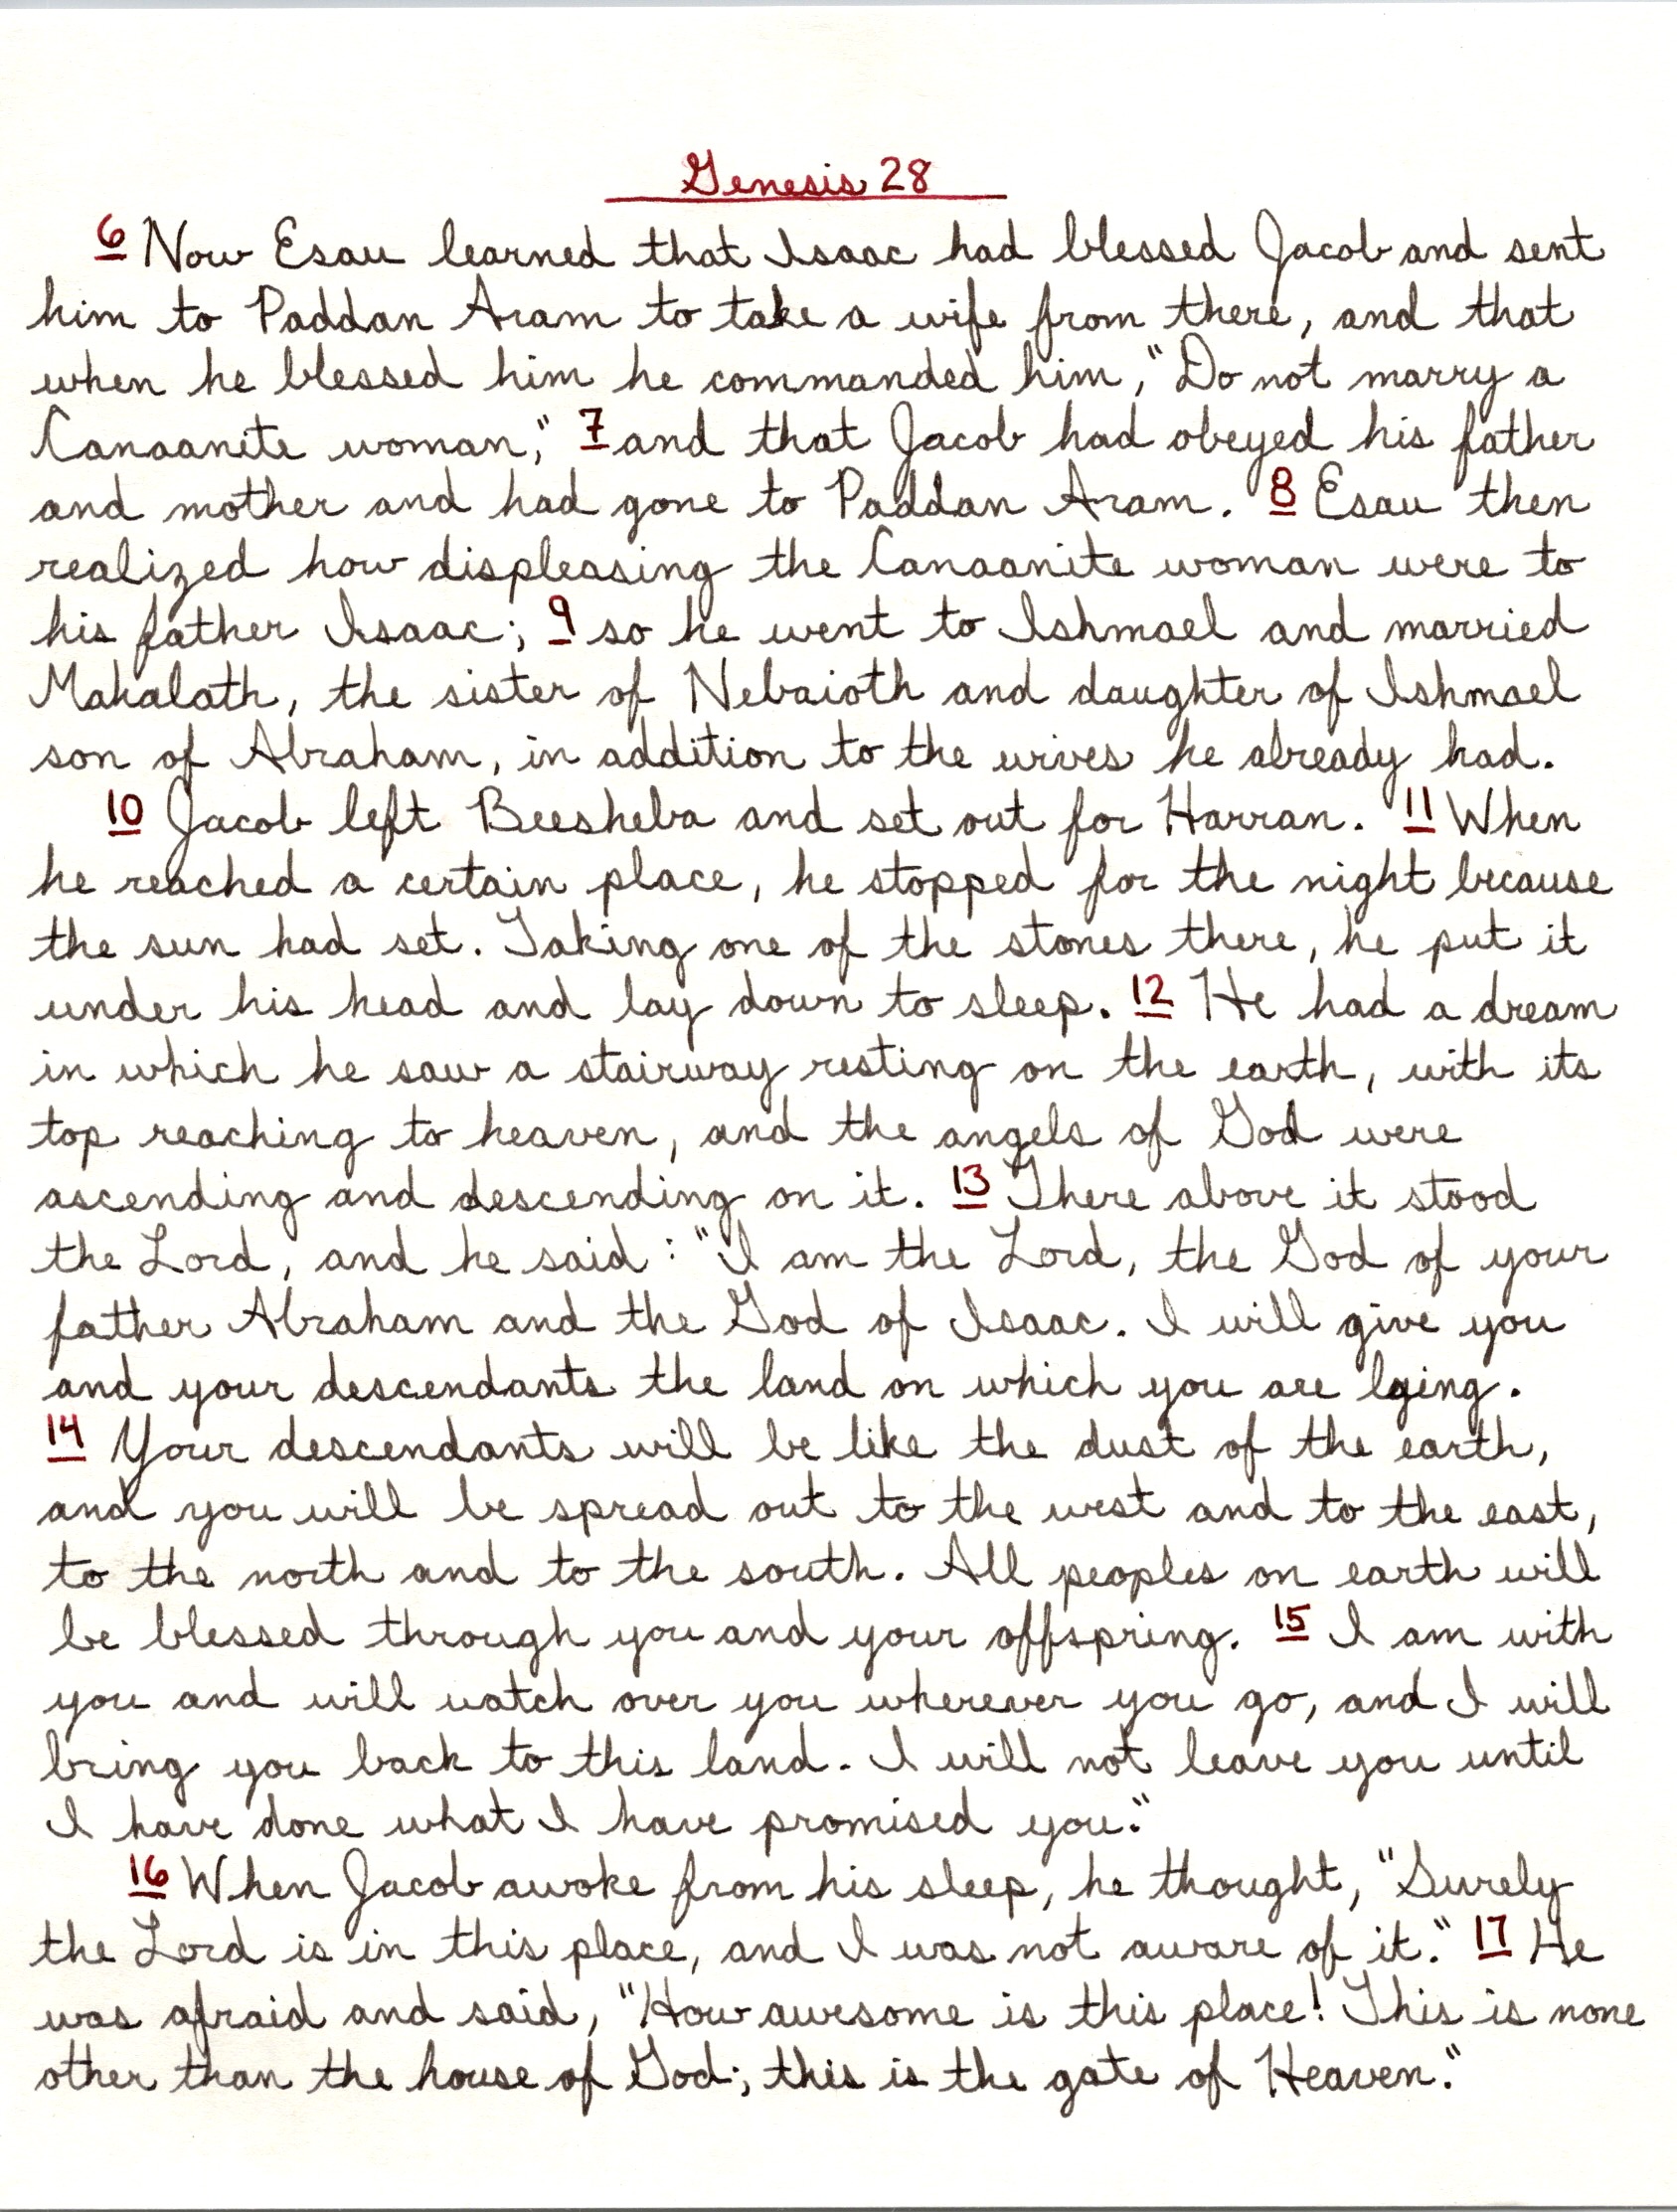 Genesis 28
6 Now Esau learned that Isaac had blessed Jacob and sent
him to Paddan Aram to take a wife from there, and that
when he blessed him he commanded him, "Do not marry a
Canaanite woman," 7 and that Jacob had obeyed his father
and mother and had gone to Paddan Aram. 8 Esau then
realized how displeasing the Canaanite woman were to
his father Isaac; 9 so he went to Ishmael and married
Mahalath, the sister of Nebaioth and daughter of Ishmael
son of Abraham, in addition to the wives he already had.
10 Jacob left Beesheba and set out for Harran. 11 When
he reached a certain place, he stopped for the night because
the sun had set. Taking one of the stones there, he put it
under his head and lay down to sleep. 12 He had a dream
in which he saw a stairway resting on the earth, with its
top reaching to heaven, and the angels of God were
ascending and descending on it. 13 There above it stood
the Lord, and he said: "I am the Lord, the God of your
father Abraham and the God of Isaac. I will give you
and your descendants the land on which you are lying.
14 Your descendants will be like the dust of the earth,
and you will be spread out to the west and to the east,
to the north and to the south. All peoples on earth will
be blessed through you and your offspring. 15 I am with
you and will watch over you wherever you go, and I will
bring you back to this land. I will not leave you until
I have done what I have promised you."
16 When Jacob awoke from his sleep, he thought, "Surely
the Lord is in this place, and I was not aware of it." 17 He
was afraid and said, "How awesome is this place! This is none
other than the house of God; this is the gate of Heaven."